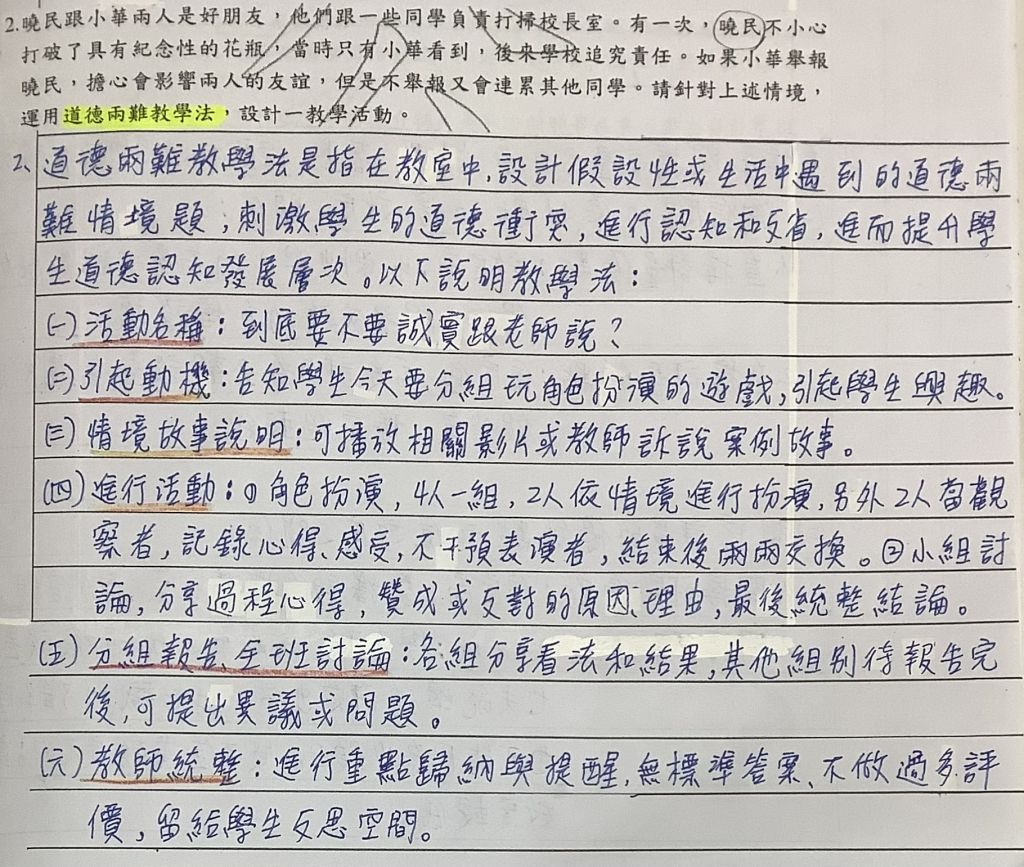 2.曉民跟小華兩人是好朋友，他們跟一些同學負責打掃校長室。有一次，曉民不小心
打破了具有紀念性的花瓶，當時只有小華看到，後來學校追究責任。如果小華舉報
曉民，擔心會影響兩人的友誼，但是不舉報又會連累其他同學。請針對上述情境，
運用道德兩難教學法，設計一教學活動。
2、道德兩難教學法是指在教室中，設計假設性或生活中遇到的道德兩
難情境題，刺激學生的道德衝突，進行認知和反省，進而提升學
生道德認知發展層次。以下說明教學法：
(一)活動名稱：到底要不要誠實跟老師說？
(二)引起動機：告知學生今天要分組玩角色扮演的遊戲，引起學生興趣。
(三)情境故事說明：可播放相關影片或教師訴說案例故事。
(四)進行活動：①角色扮演，4人一組，2人依情境進行扮演，另外2人當觀
察者，記錄心得、感受，不干預表演者，結束後兩兩交換。②小組討
論，分享過程心得，贊成或反對的原因、理由，最後統整結論。
(五)分組報告、全班討論：各組分享看法和結果，其他組別待報告完
後，可提出異議或問題。
(六)教師統整：進行重點歸納與提醒，無標準答案、不做過多評
價，留給學生反思空間。